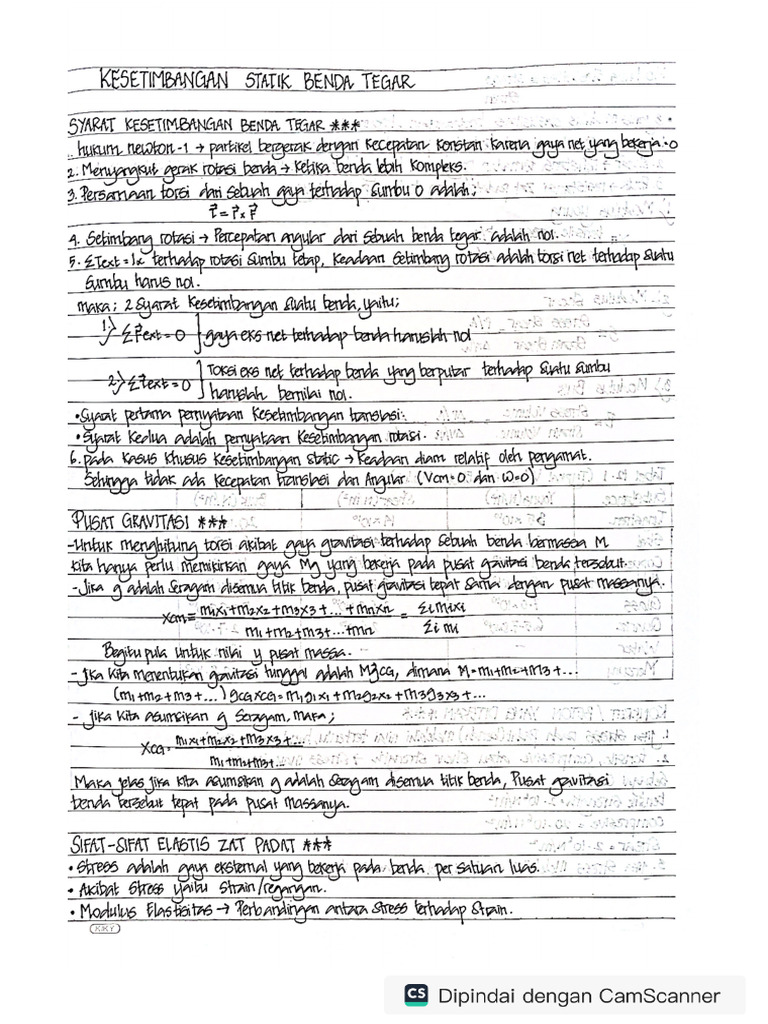 KESETIMBANGAN STATIK BENDA TEGAR
SYARAT KESETIMBANGAN BENDA TEGAR ***
.. hukum newton-1 → partikel bergerak dengan kecepatan konstan karena gaya net yang bekerja = 0
2. Menyangkut gerak rotasi benda → Ketika benda lebih kompleks.
3. Persamaan torsi dari sebuah gaya terhadap sumbu O adalah;
τ⃗ = r⃗ x F⃗
4. Setimbang rotasi → Percepatan angular dari sebuah benda tegar adalah nol.
5. Στext = Iα terhadap rotasi sumbu tetap, keadaan setimbang rotasi adalah torsi net terhadap suatu
sumbu harus nol.
maka; 2 syarat kesetimbangan suatu benda, yaitu;
1.) ΣF⃗ext = 0 } gaya eks net terhadap benda haruslah nol
2.) Στ⃗ext = 0 } Torsi eks net terhadap benda yang berputar terhadap suatu sumbu
haruslah bernilai nol.
• Syarat pertama pernyataan kesetimbangan translasi.
• Syarat kedua adalah pernyataan kesetimbangan rotasi.
6. pada kasus khusus kesetimbangan static → keadaan diam relatif oleh pengamat.
Sehingga tidak ada kecepatan translasi dan Angular (Vcm=0 dan ω=0)
PUSAT GRAVITASI ***
- Untuk menghitung torsi akibat gaya gravitasi terhadap sebuah benda bermassa M
kita hanya perlu memikirkan gaya Mg yang bekerja pada pusat gravitasi benda tersebut.
- Jika g adalah seragam disemua titik benda, pusat gravitasi tepat sama dengan pusat massanya.
Xcm = m1x1+m2x2+m3x3+... +mnxn / m1+m2+m3+...+mn = Σi mixi / Σi mi
Begitu pula untuk nilai y pusat massa.
- jika kita menentukan gravitasi tunggal adalah MgCG, dimana M=m1+m2+m3+...
(m1+m2+m3+...) gCG XCG = m1g1x1+m2g2x2+m3g3x3+...
- jika kita asumsikan g seragam, maka;
XCG = m1x1+m2x2+m3x3+... / m1+m2+m3+...
Maka jelas jika kita asumsikan g adalah seragam disemua titik benda, Pusat gravitasi
benda tersebut tepat pada pusat massanya.
SIFAT-SIFAT ELASTIS ZAT PADAT ***
• Stress adalah gaya eksternal yang bekerja pada benda per satuan luas.
• Akibat stress yaitu strain/regangan.
• Modulus Elastisitas → Perbandingan antara stress terhadap strain.
KIKY
CS Dipindai dengan CamScanner